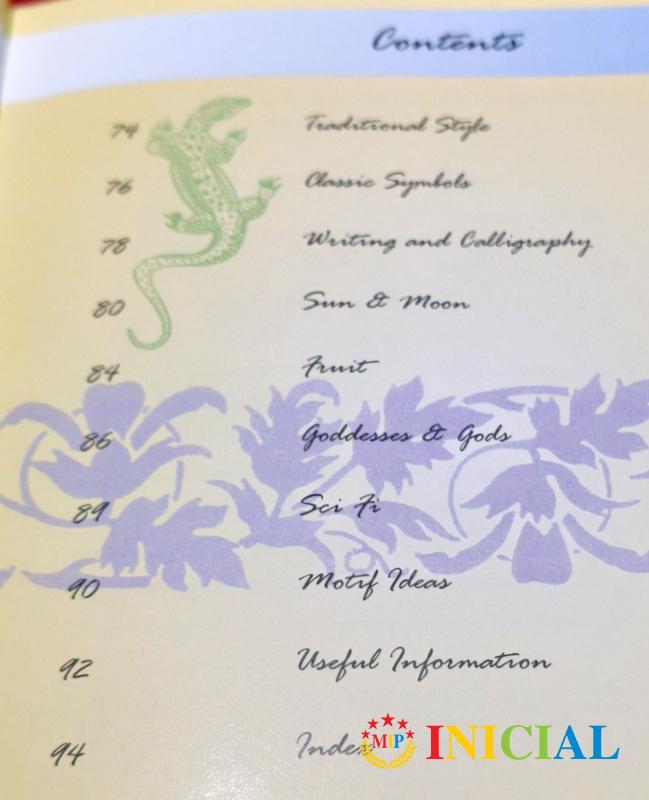 Contents
74 Traditional Style
76 Classic Symbols
78 Writing and Calligraphy
80 Sun & Moon
84 Fruit
86 Goddesses & Gods
89 Sci Fi
90 Motif Ideas
92 Useful Information
94 Index
MIP INICIAL